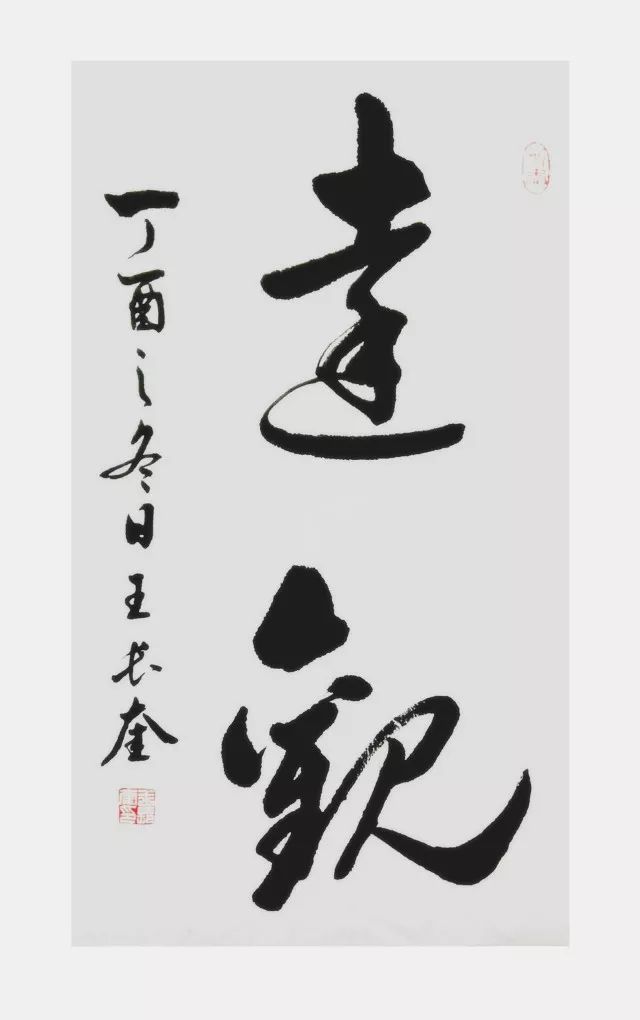 達觀
丁酉之冬日王长奎